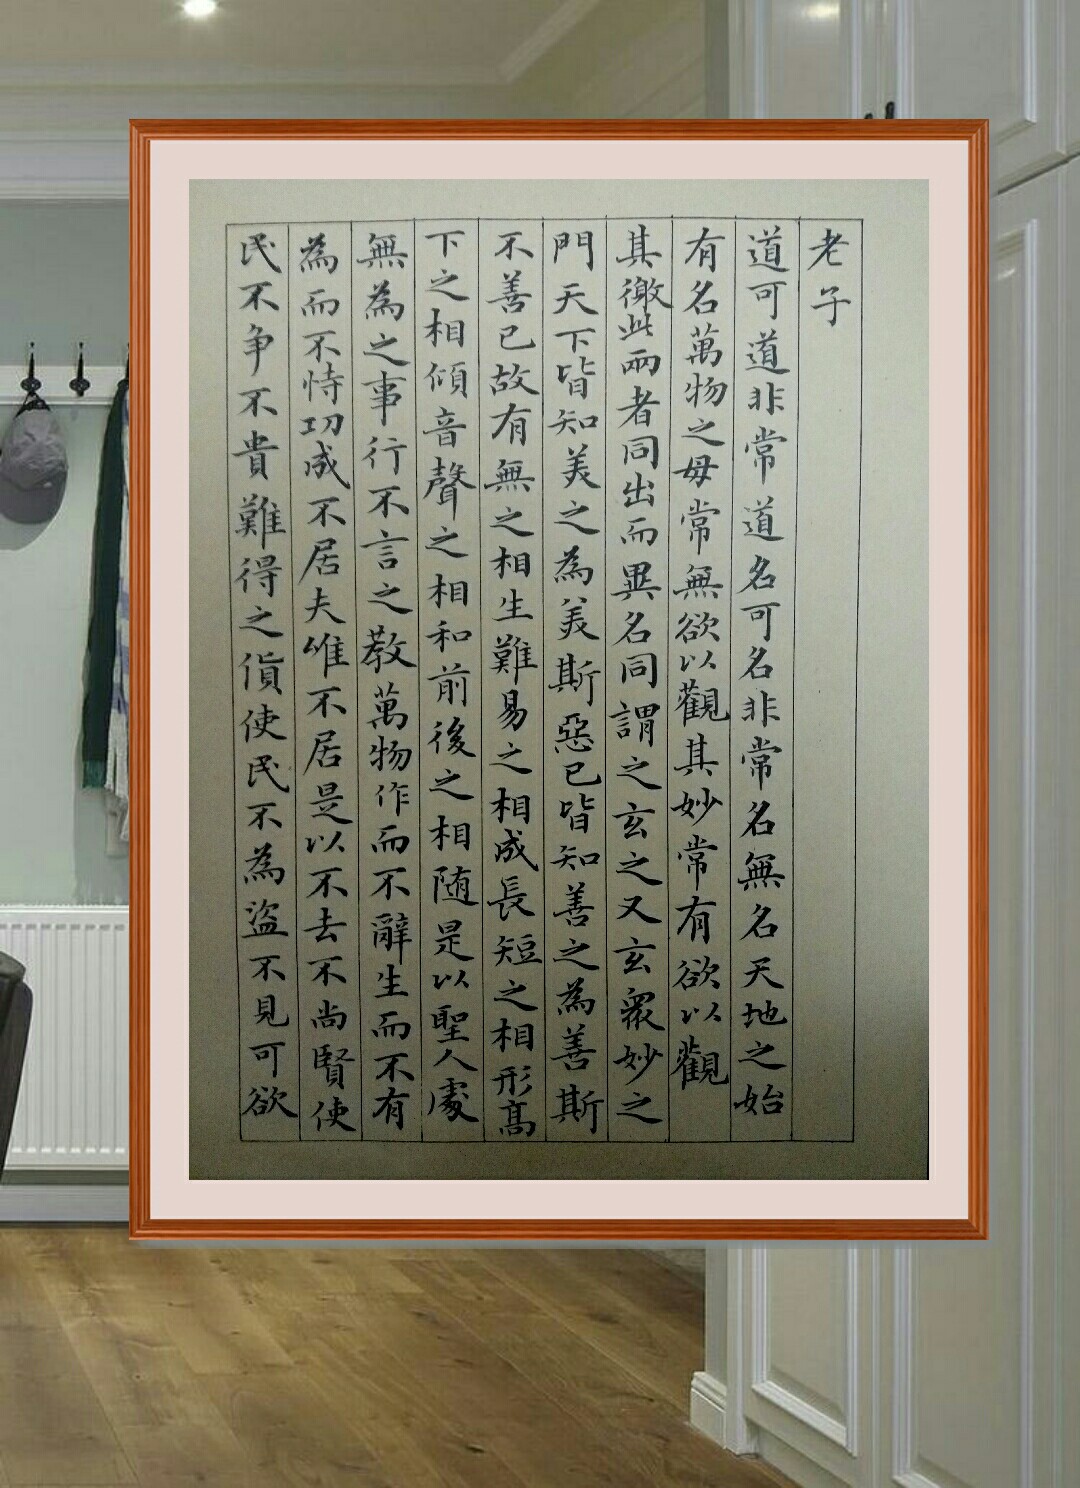 老子
道可道非常道名可名非常名無名天地之始
有名萬物之母常無欲以觀其妙常有欲以觀
其徼此兩者同出而異名同謂之玄之又玄衆妙之
門天下皆知美之為美斯惡已皆知善之為善斯
不善已故有無之相生難易之相成長短之相形高
下之相傾音聲之相和前後之相随是以聖人處
無為之事行不言之教萬物作而不辭生而不有
為而不恃功成不居夫唯不居是以不去不尚賢使
民不争不貴難得之貨使民不為盗不見可欲